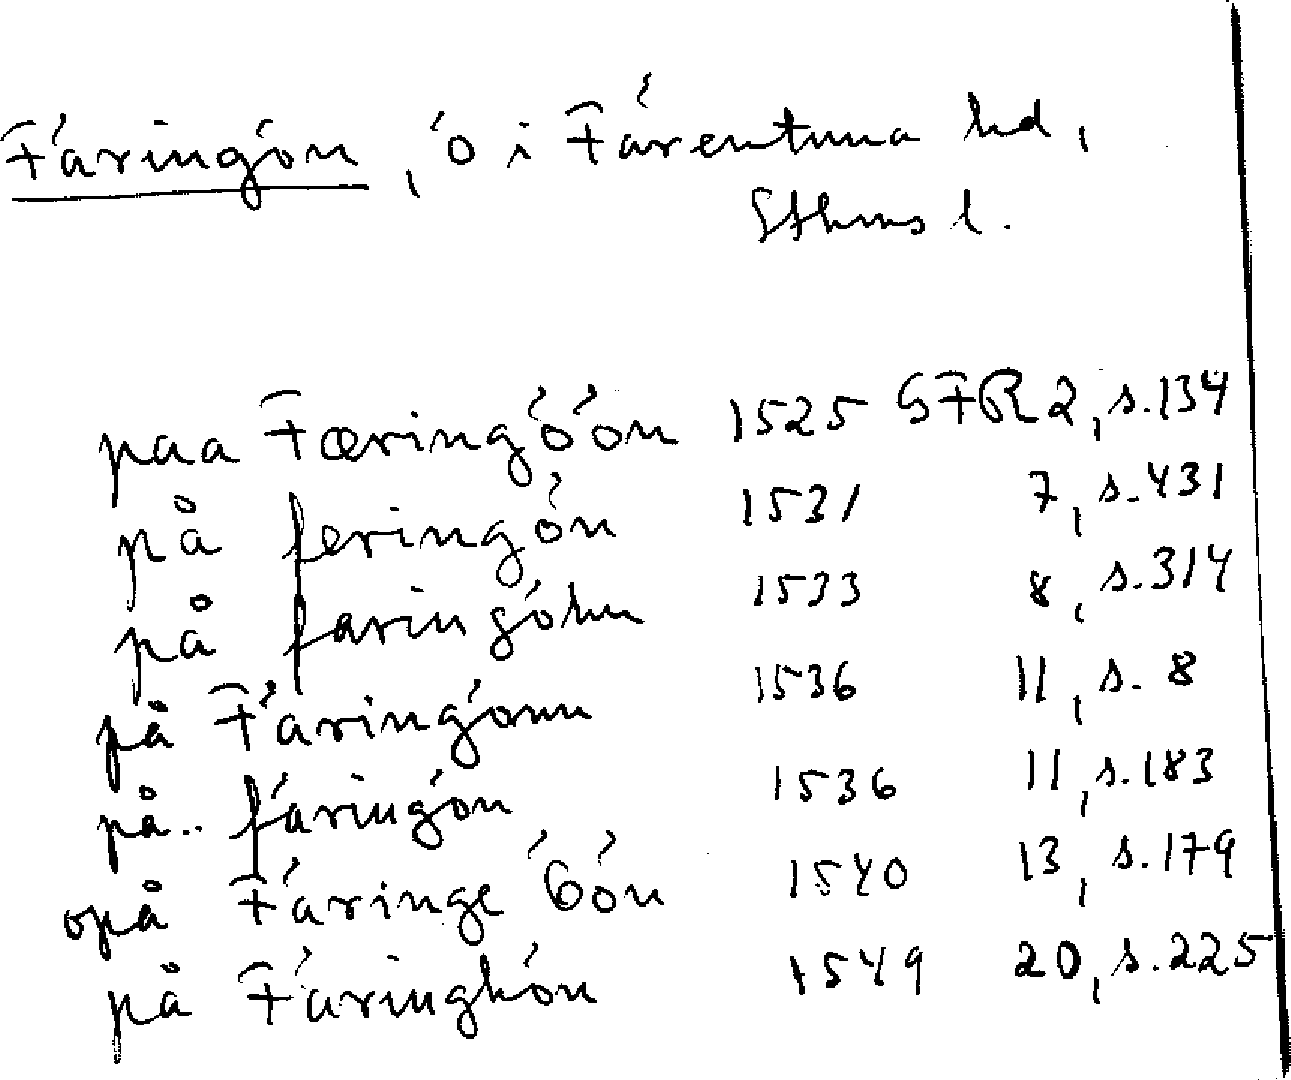 Färingön, ö i Färentuna hd,
Sthms l.
paa Færingöön 1525 GFR 2, s. 134
på feringön 1531 7, s. 431
på faringöhn 1533 8, s. 314
på Färingönn 1536 11, s. 8
på.. färingön 1536 11, s. 183
opå Färinge öön 1540 13, s. 179
på Färinghön 1549 20, s. 225